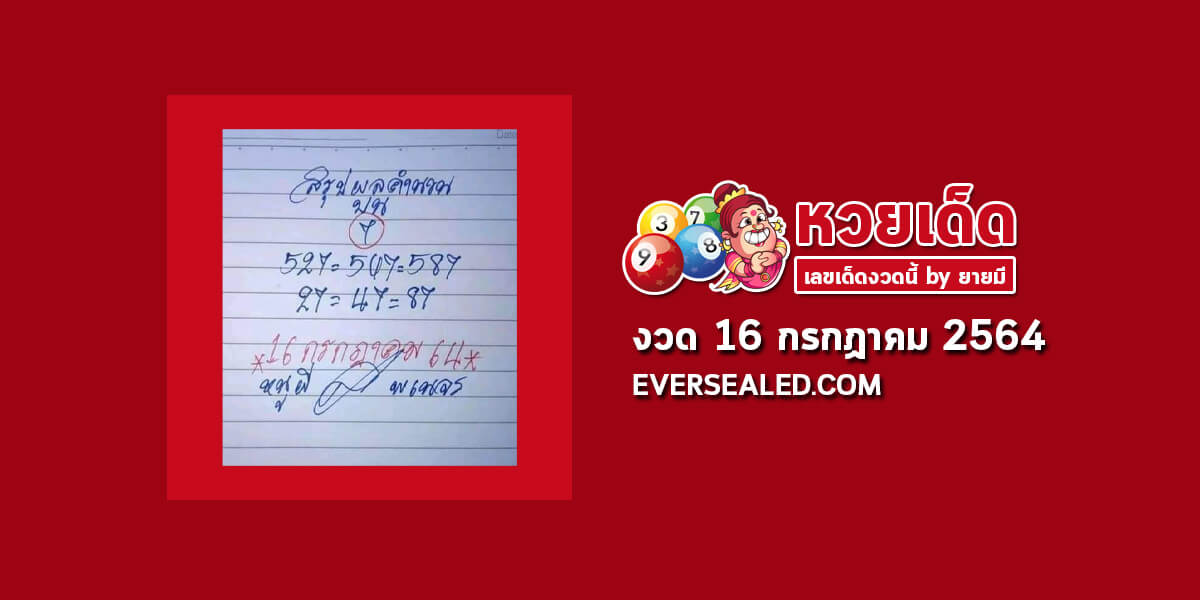 สรุปผลคำนวน
บน
7
527=547=587
27=47=87
*16 กรกฎาคม 64*
หนูผี พเนจร
3 7
9 8
หวยเด็ด
เลขเด็ดงวดนี้ by ยายมี
งวด 16 กรกฎาคม 2564
EVERSEALED.COM